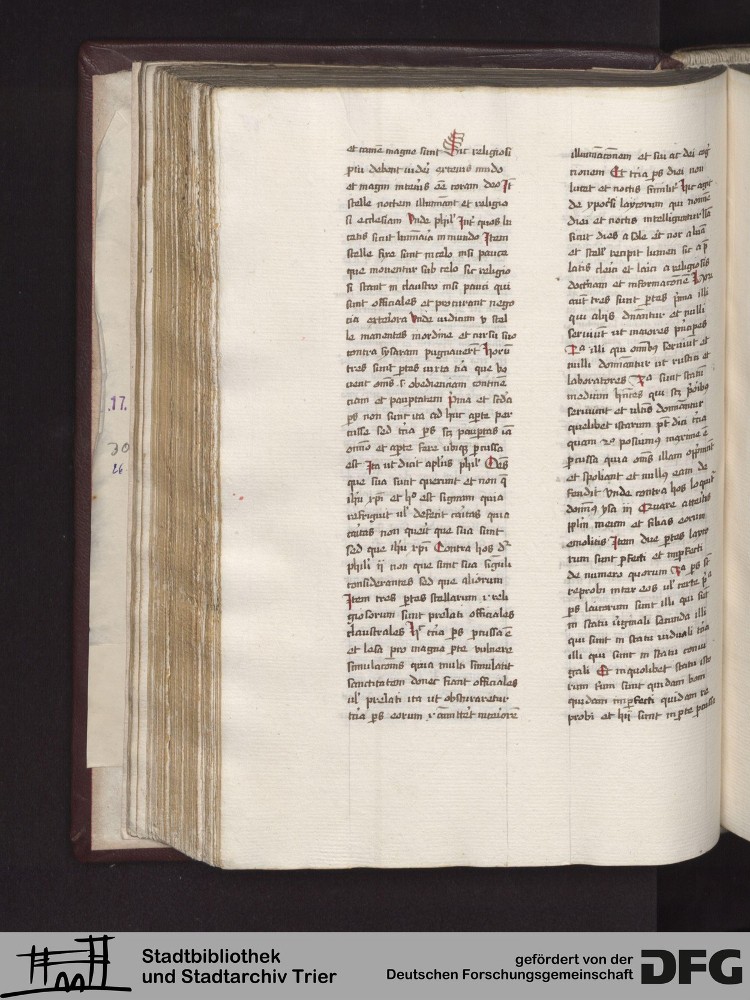 et tamen magne sunt Sic religiosi
et magni interius coram deo It
stelle noctem illuminant et religio
si ecclesiam Vnde phil' Int' quos lu
cetis sicut luminaria in mundo Item
stelle fixe sunt in celo nisi pauce
que mouentur sub celo sic religio
si stant in claustro nisi pauci qui
sunt officiales et procurant nego
cia exteriora Vnde iudicum v stel
le manentes in ordine et cursu suo
contra sysaram pugnauerunt Horum
tres sunt ptes iuxta tria que vo
uent oms s obedienciam contine
ciam et paupertatem pma et scda
ps non sunt ita ad huc apte per
cusse sed tria ps scz paupertas ia
omnino et apte fere ubique pcussa
est Ita ut dicit aplus phil' Oes
que sua sunt querunt et non que
ihu xpi et hoc est signum quia
refriguit ul' deficit caritas quia
caritas non querit que sua sunt
sed que ihu xpi Contra hos dr
phili ii non que sunt sua singuli
considerantes sed que aliorum
Item tres ptes stellarum i reli
giosorum sunt prelati officiales
claustrales Hec tria ps pcussa e
et lesa pro magna pte vulnere
simulacionis quia multi simulant
sanctitatem donec fiant officiales
ul' prelati ita ut obscuraretur
tria ps eorum
illuminacionem et sui ac dei cog
nicionem Et tria ps diei non
lucet et noctis similiter Hic agit
de ypocrisi laycorum qui nomine
diei et noctis intelliguntur
sicut dies a sole et nox a luna
et stell' recipit lumen sic a p
latis cleri et laici a religiosis
doctrinam et informacionem Horum
aut tres sunt ptes pma illi
qui aliis dominantur et nulli
seruiunt ut maiores principes
2a illi qui omnibus seruiunt et
nulli dominantur ut rustici et
laboratores 3a sunt statum
medium habentes qui scz prioribus
seruiunt et vltimis dominantur
quelibet istarum pt dici tria
quam 2o possumus maxime
pcussa quia omnes illam opprimunt
et spoliant et nullus eam de
fendit Vnde contra hos loquitur
dominus ysa iii Quare atteritis
pplm meum et facies eorum
emolitis Item due ptes layco
rum sunt pfecti et imperfecti
de numero quorum 3a ps st
reprobi inter eos ul' certe pa
ps laicorum sunt illi qui sunt
in statu virginali secunda illi
qui sunt in statu viduali tria
illi qui sunt in statu coniu
gali Et in quolibet statu isto
rum trium sunt quidam boni
quidam imperfecti quidam re
probi et hii sunt in pte pcussa
.17.
30
26
Stadtbibliothek
und Stadtarchiv Trier
gefördert von der
Deutschen Forschungsgemeinschaft
DFG